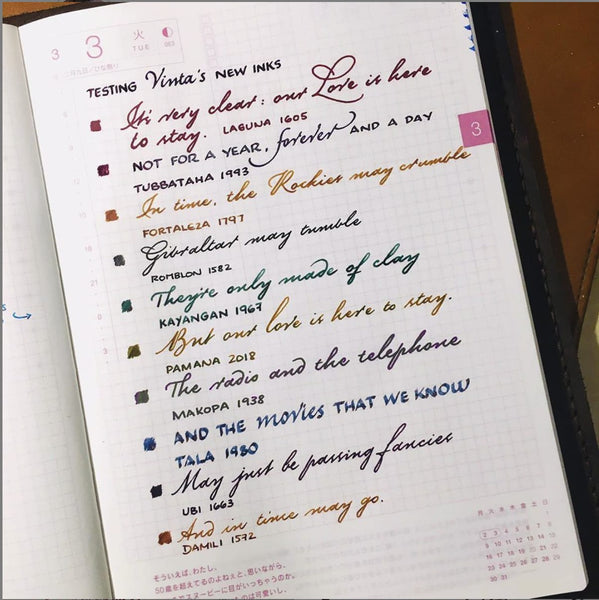 3 3 火
TUE 063
TESTING Vinta's NEW INKS
It's very clear: our Love is here
to stay. LAGUNA 1605
NOT FOR A YEAR, forever AND A DAY
TUBBATAHA 1993
3
In time, the Rockies may crumble
FORTALEZA 1797
Gibraltar may tumble
ROMBLON 1582
They're only made of clay
KAYANGAN 1967
But our love is here to stay.
PAMANA 2018
The radio and the telephone
MAKOPA 1938
AND THE movies THAT WE KNOW
TALA 1980
May just be passing fancies
UBI 1663
And in time may go.
DAMILI 1572
月 火 水 木 金 土 日
1
2 3 4 5 6 7 8
9 10 11 12 13 14 15
16 17 18 19 20 21 22
23 24 25 26 27 28 29
30 31
そういえば、わたし、
50歳を超えてるのよねぇと、思いながら、
スヌーピーに目がいっちゃうのか。